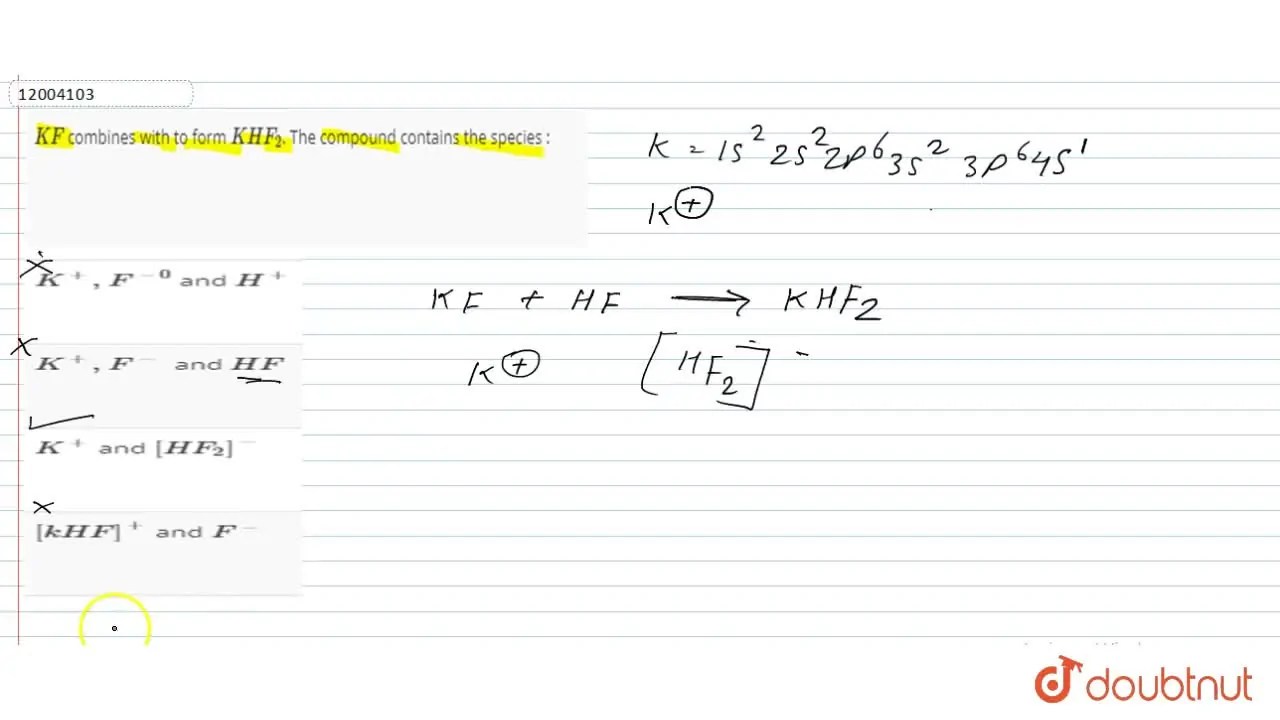 12004103
KF combines with to form KHF₂. The compound contains the species :
K = 1s² 2s² 2p⁶ 3s² 3p⁶ 4s¹
K⁺
K⁺, F⁻⁰ and H⁺
KF + HF ⟶ KHF₂
K⁺, F⁻ and HF
K⁺ [HF₂]⁻
K⁺ and [HF₂]⁻
[kHF]⁺ and F⁻
doubtnut